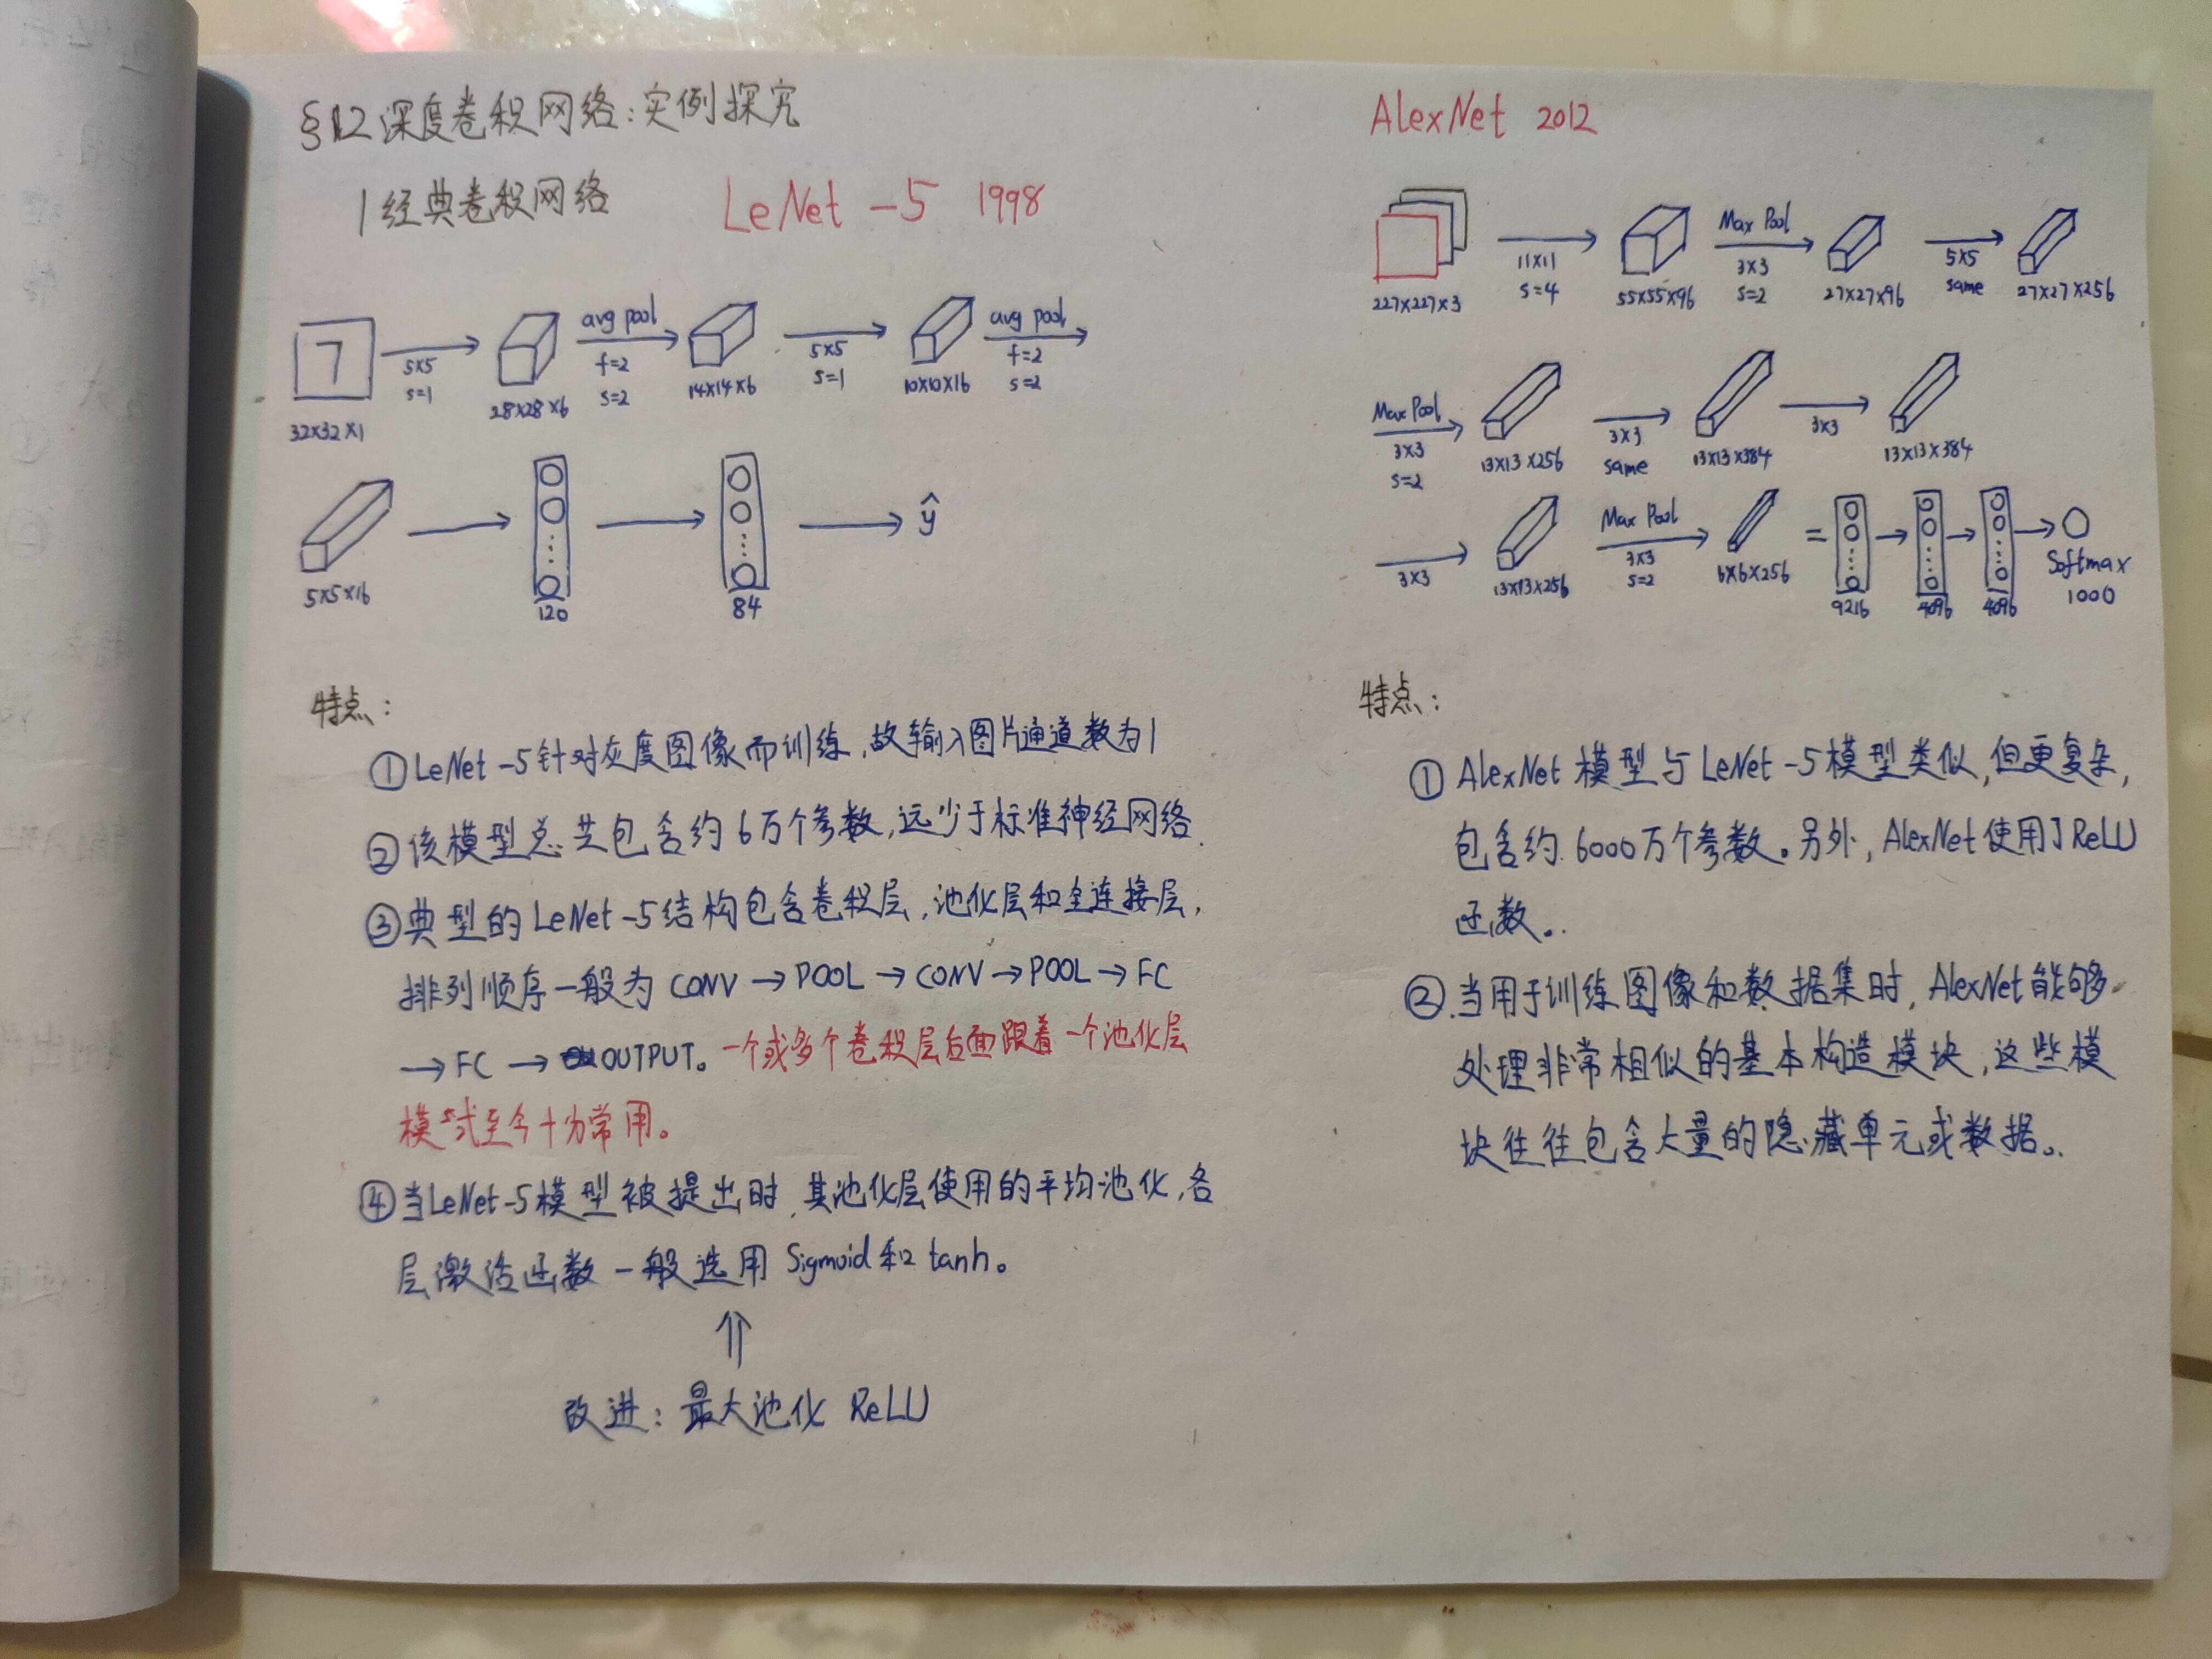 §12 深度卷积网络：实例探究
1 经典卷积网络
LeNet-5 1998
7
32×32×1
5×5
s=1
28×28×6
avg pool
f=2
s=2
14×14×6
5×5
s=1
10×10×16
avg pool
f=2
s=2
5×5×16
120
84
ŷ
特点：
① LeNet-5针对灰度图像而训练，故输入图片通道数为1
② 该模型总共包含约6万个参数，远少于标准神经网络.
③ 典型的LeNet-5结构包含卷积层，池化层和全连接层，
排列顺序一般为 CONV → POOL → CONV → POOL → FC
→ FC → OUTPUT。一个或多个卷积层后面跟着一个池化层
模式至今十分常用。
④ 当LeNet-5模型被提出时，其池化层使用的平均池化，各
层激活函数一般选用 Sigmoid和 tanh。
⇑
改进：最大池化 ReLU
AlexNet 2012
227×227×3
11×11
s=4
55×55×96
Max Pool
3×3
s=2
27×27×96
5×5
same
27×27×256
Max Pool
3×3
s=2
13×13×256
3×3
same
13×13×384
3×3
13×13×384
3×3
13×13×256
Max Pool
3×3
s=2
6×6×256
=
9216
4096
4096
Softmax
1000
特点：
① AlexNet 模型与LeNet-5模型类似，但更复杂，
包含约6000万个参数。另外，AlexNet使用了ReLU
函数。
② 当用于训练图像和数据集时，AlexNet能够
处理非常相似的基本构造模块，这些模
块往往包含大量的隐藏单元或数据。